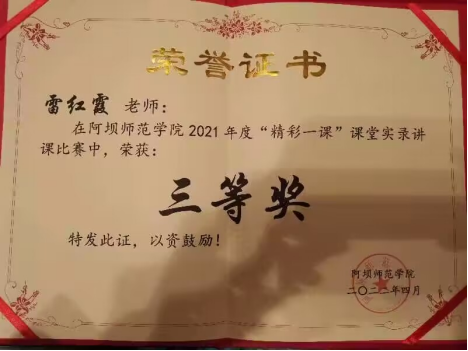 荣誉证书
雷红霞 老师：
在阿坝师范学院2021年度“精彩一课”课堂实录讲
课比赛中，荣获：
三等奖
特发此证，以资鼓励！
阿坝师范学院
二〇二二年四月